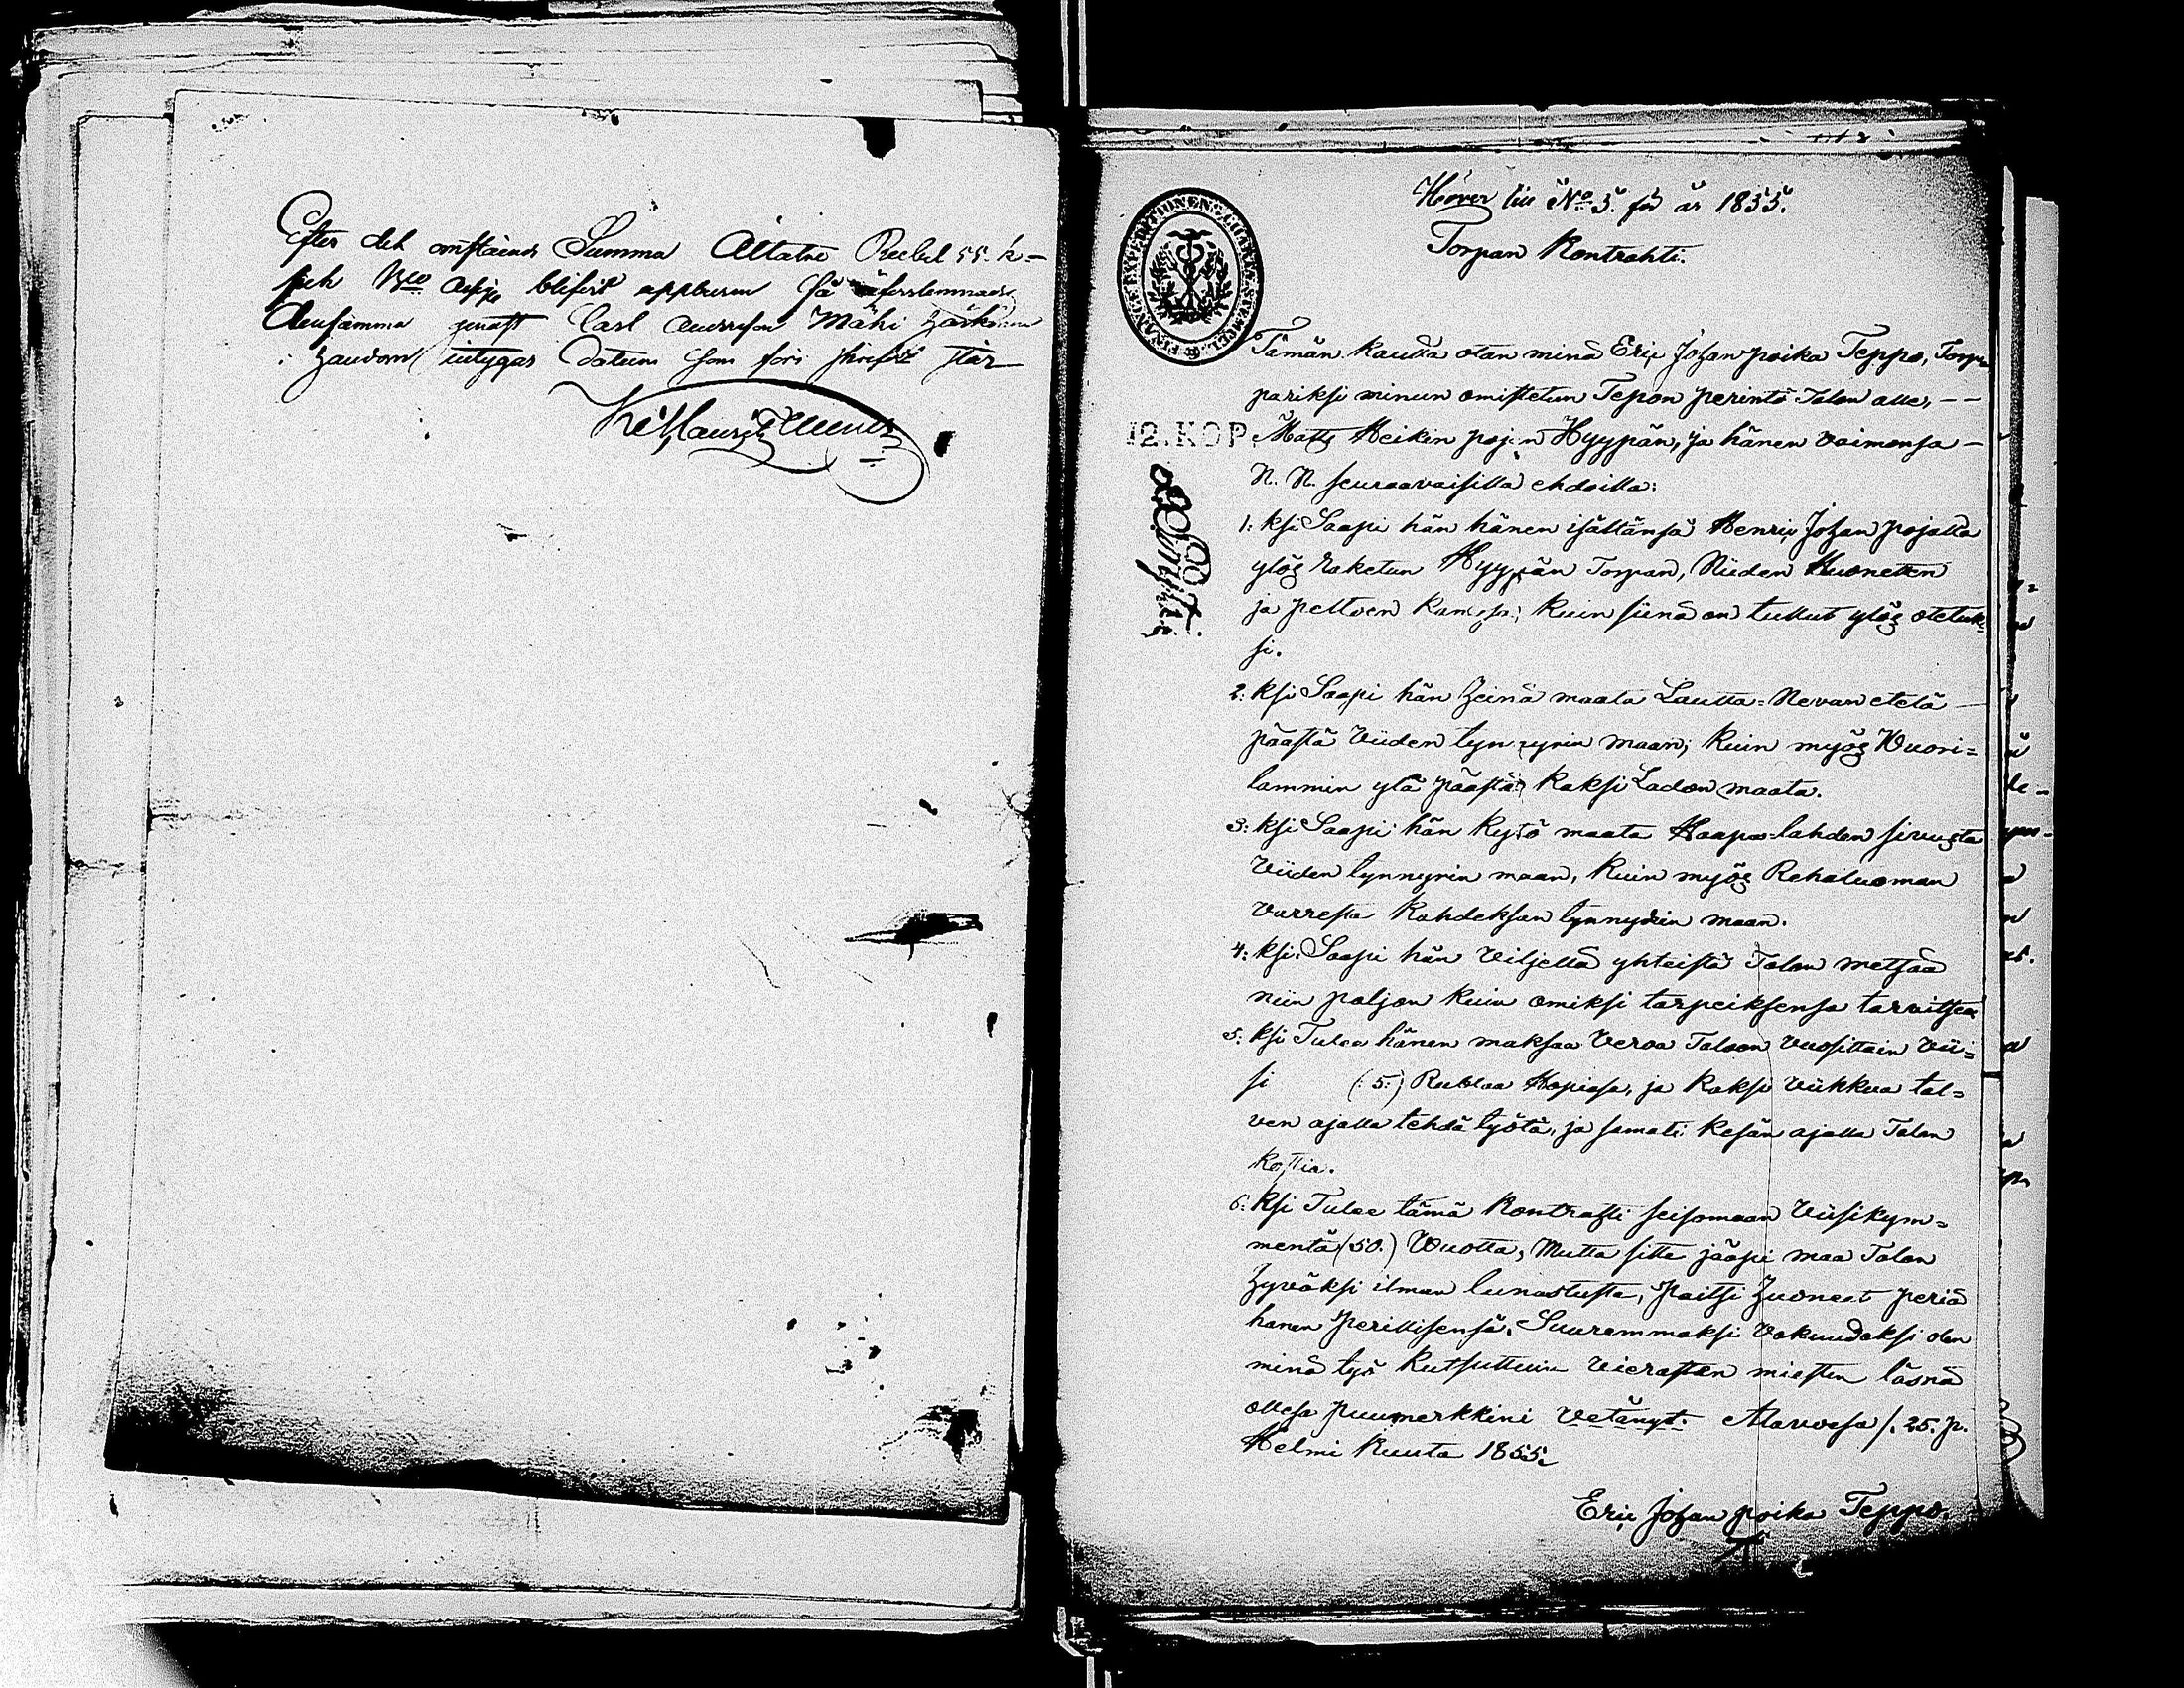 Efter det omstående Summa Åttatie Rubel 55. k-
pek blifvit uppburen så öfverlemnades
densamma genast Carl Andersson Mähi
i handom intygas Datum som före skrefvit står
Hörer till No 3. för år 1855.
Torpan Kontrahti.
FINANCE EXPEDITIONENS CHARTÆ STEMPEL
12. KOP.
Tämän kautta otan minä Eric Johan poika Teppo, Torp-
pariksi minun omistetun Tepon perintö Talon alle, --
Matts Heikin pojan Hyypän, ja hänen vaimonsa -
N. N. seuraavaisilla ehdoilla:
1: ksi Saapi hän hänen isältänsä Henric Johan pojalta
ylös raketun Hyypän Torpan, Niiden Huonetten
ja peltoen kanssa; kuin siinä on tullut ylös otetuk-
si.
2: ksi Saapi hän heinä maata Lautta=Nevan etelä -
päästä Viiden tynnyrin maan; kuin myös Wuori=
lammin ylä päästä kaksi Ladon maata.
3: ksi Saapi hän kytö maata Haapa=lahden sivusta
Viiden tynnyrin maan, kuin myös Rehaluoman
varresta kahdeksan tynnyrin maan.
4: ksi Saapi hän viljellä yhteistä Talon metsää
niin paljon kuin omiksi tarpeiksensa tarvitsee
5: ksi Tulee hänen maksaa veroa Taloon vuosittain vii=
si (:5:) Rublaa Hopiasa, ja kaksi viikkoa tal=
ven ajalla tehdä työtä, ja samati kesän ajalla Talon
kostia.
6: ksi Tulee tämä Kontrahti seisomaan Viisikym=
mentä (50.) Wuotta, Mutta sitte jääpi maa Talon
hyväksi ilman lunastusta, paitsi huoneet periä
hanen Perillisensä. Suuremmaksi vakuudeksi olen
minä työ kutsuttuin vierasten miesten läsnä
ollesa puumerkkini vetänyt. Alavuesa /. 25. p.
Helmi kuuta 1855.
Eric Johan poika Teppo.